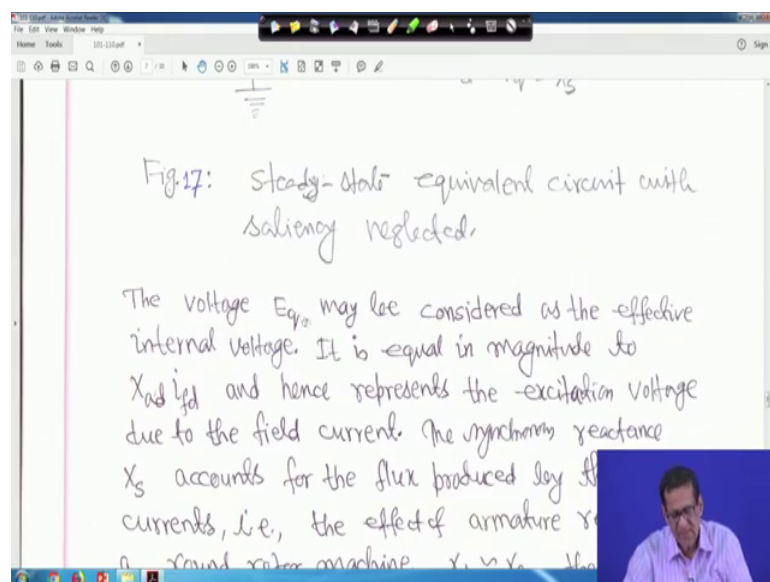 101-110.pdf - Adobe Acrobat Reader DC
File Edit View Window Help
Home Tools 101-110.pdf × Sign
7 / 10
Fig.17: Steady-state equivalent circuit with
saliency neglected.
The voltage Eq may be considered as the effective
internal voltage. It is equal in magnitude to
Xad ifd and hence represents the excitation voltage
due to the field current. The synchronous reactance
Xs accounts for the flux produced by
currents, i.e., the effect of armature
a round rotor machine